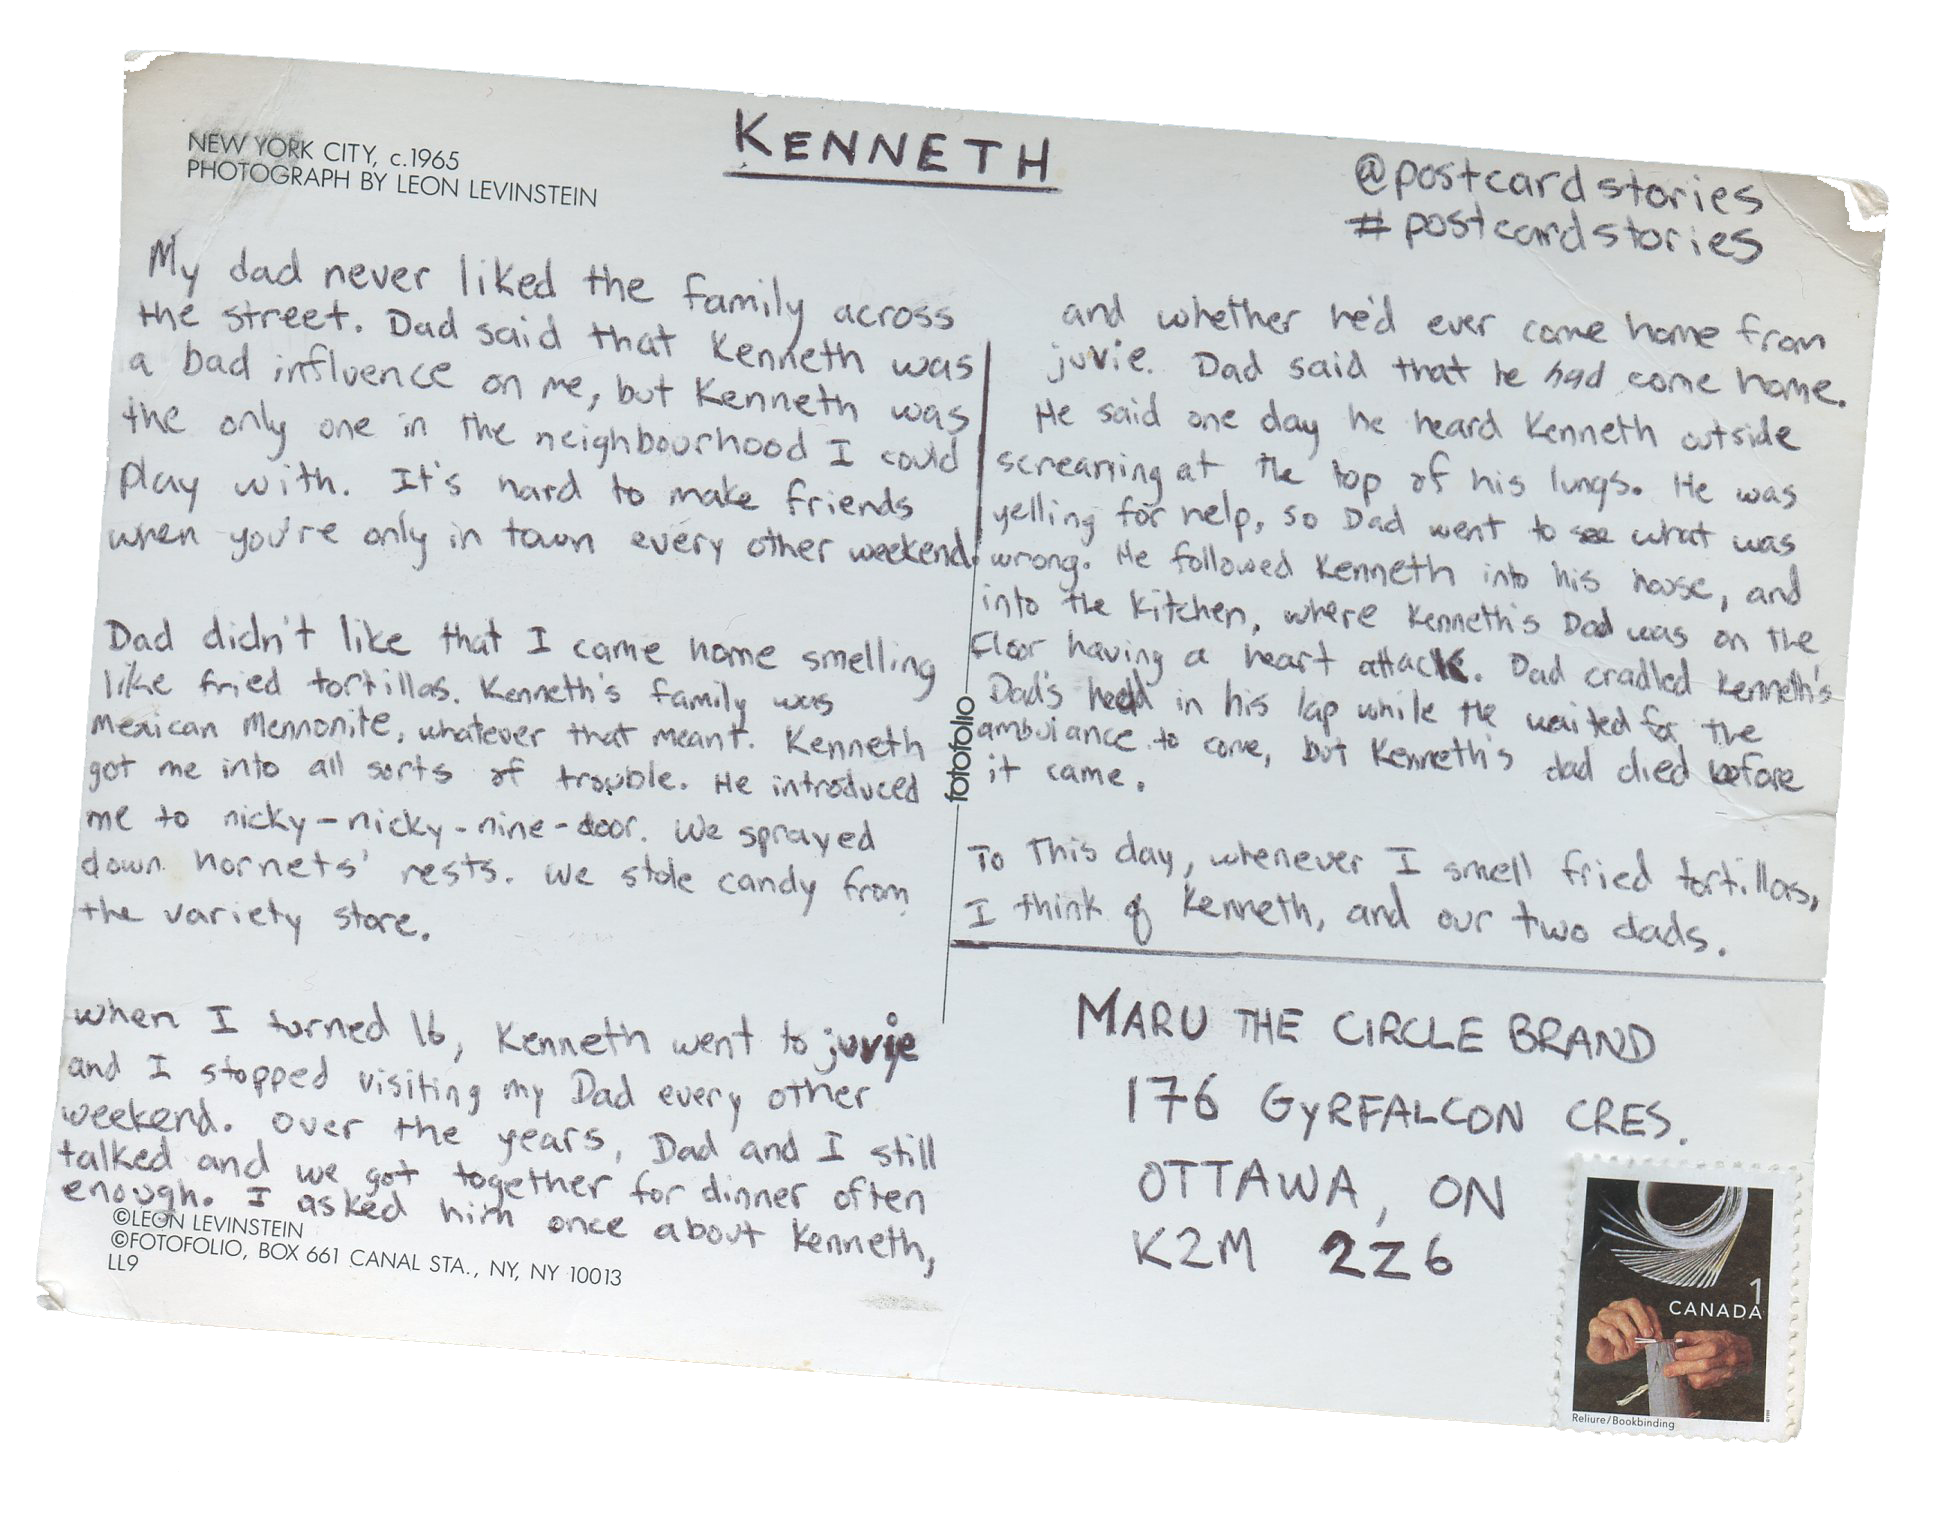 NEW YORK CITY, c.1965
PHOTOGRAPH BY LEON LEVINSTEIN
KENNETH
@postcardstories
#postcardstories
My dad never liked the family across
the street. Dad said that Kenneth was
a bad influence on me, but Kenneth was
the only one in the neighbourhood I could
play with. It's hard to make friends
when you're only in town every other weekend.
Dad didn't like that I came home smelling
like fried tortillas. Kenneth's family was
Mexican Mennonite, whatever that meant. Kenneth
got me into all sorts of trouble. He introduced
me to nicky-nicky-nine-door. We sprayed
down hornets' nests. We stole candy from
the variety store.
When I turned 16, Kenneth went to juvie
and I stopped visiting my Dad every other
weekend. Over the years, Dad and I still
talked and we got together for dinner often
enough. I asked him once about Kenneth,
©LEON LEVINSTEIN
©FOTOFOLIO, BOX 661 CANAL STA., NY, NY 10013
LL9
fotofolio
and whether he'd ever come home from
juvie. Dad said that he had come home.
He said one day he heard Kenneth outside
screaming at the top of his lungs. He was
yelling for help, so Dad went to see what was
wrong. He followed Kenneth into his house, and
into the kitchen, where Kenneth's Dad was on the
floor having a heart attack. Dad cradled Kenneth's
Dad's head in his lap while the waited for the
ambulance to come, but Kenneth's dad died before
it came.
To this day, whenever I smell fried tortillas,
I think of Kenneth, and our two dads.
MARU THE CIRCLE BRAND
176 GYRFALCON CRES.
OTTAWA, ON
K2M 2Z6
1
CANADA
Reliure/Bookbinding